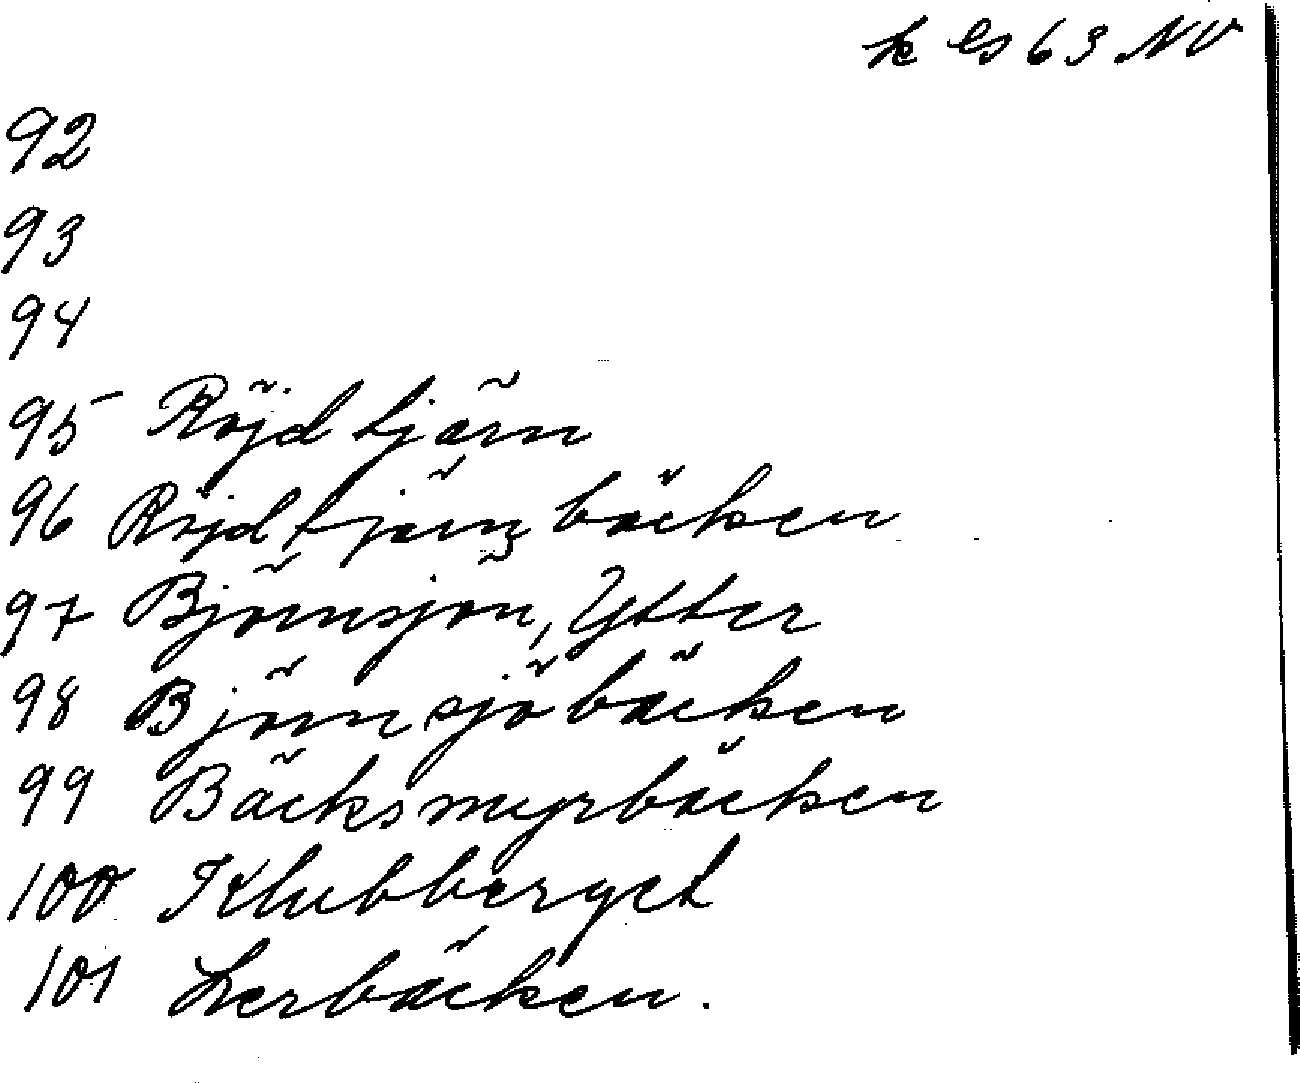 k es 63 NV
92
93
94
95 Röjdtjärn
96 Röjdtjärnsbäcken
97 Björnsjön, Ytter
98 Björnsjöbäcken
99 Bäcksmyrbäcken
100 Klubberget
101 Lerbäcken.